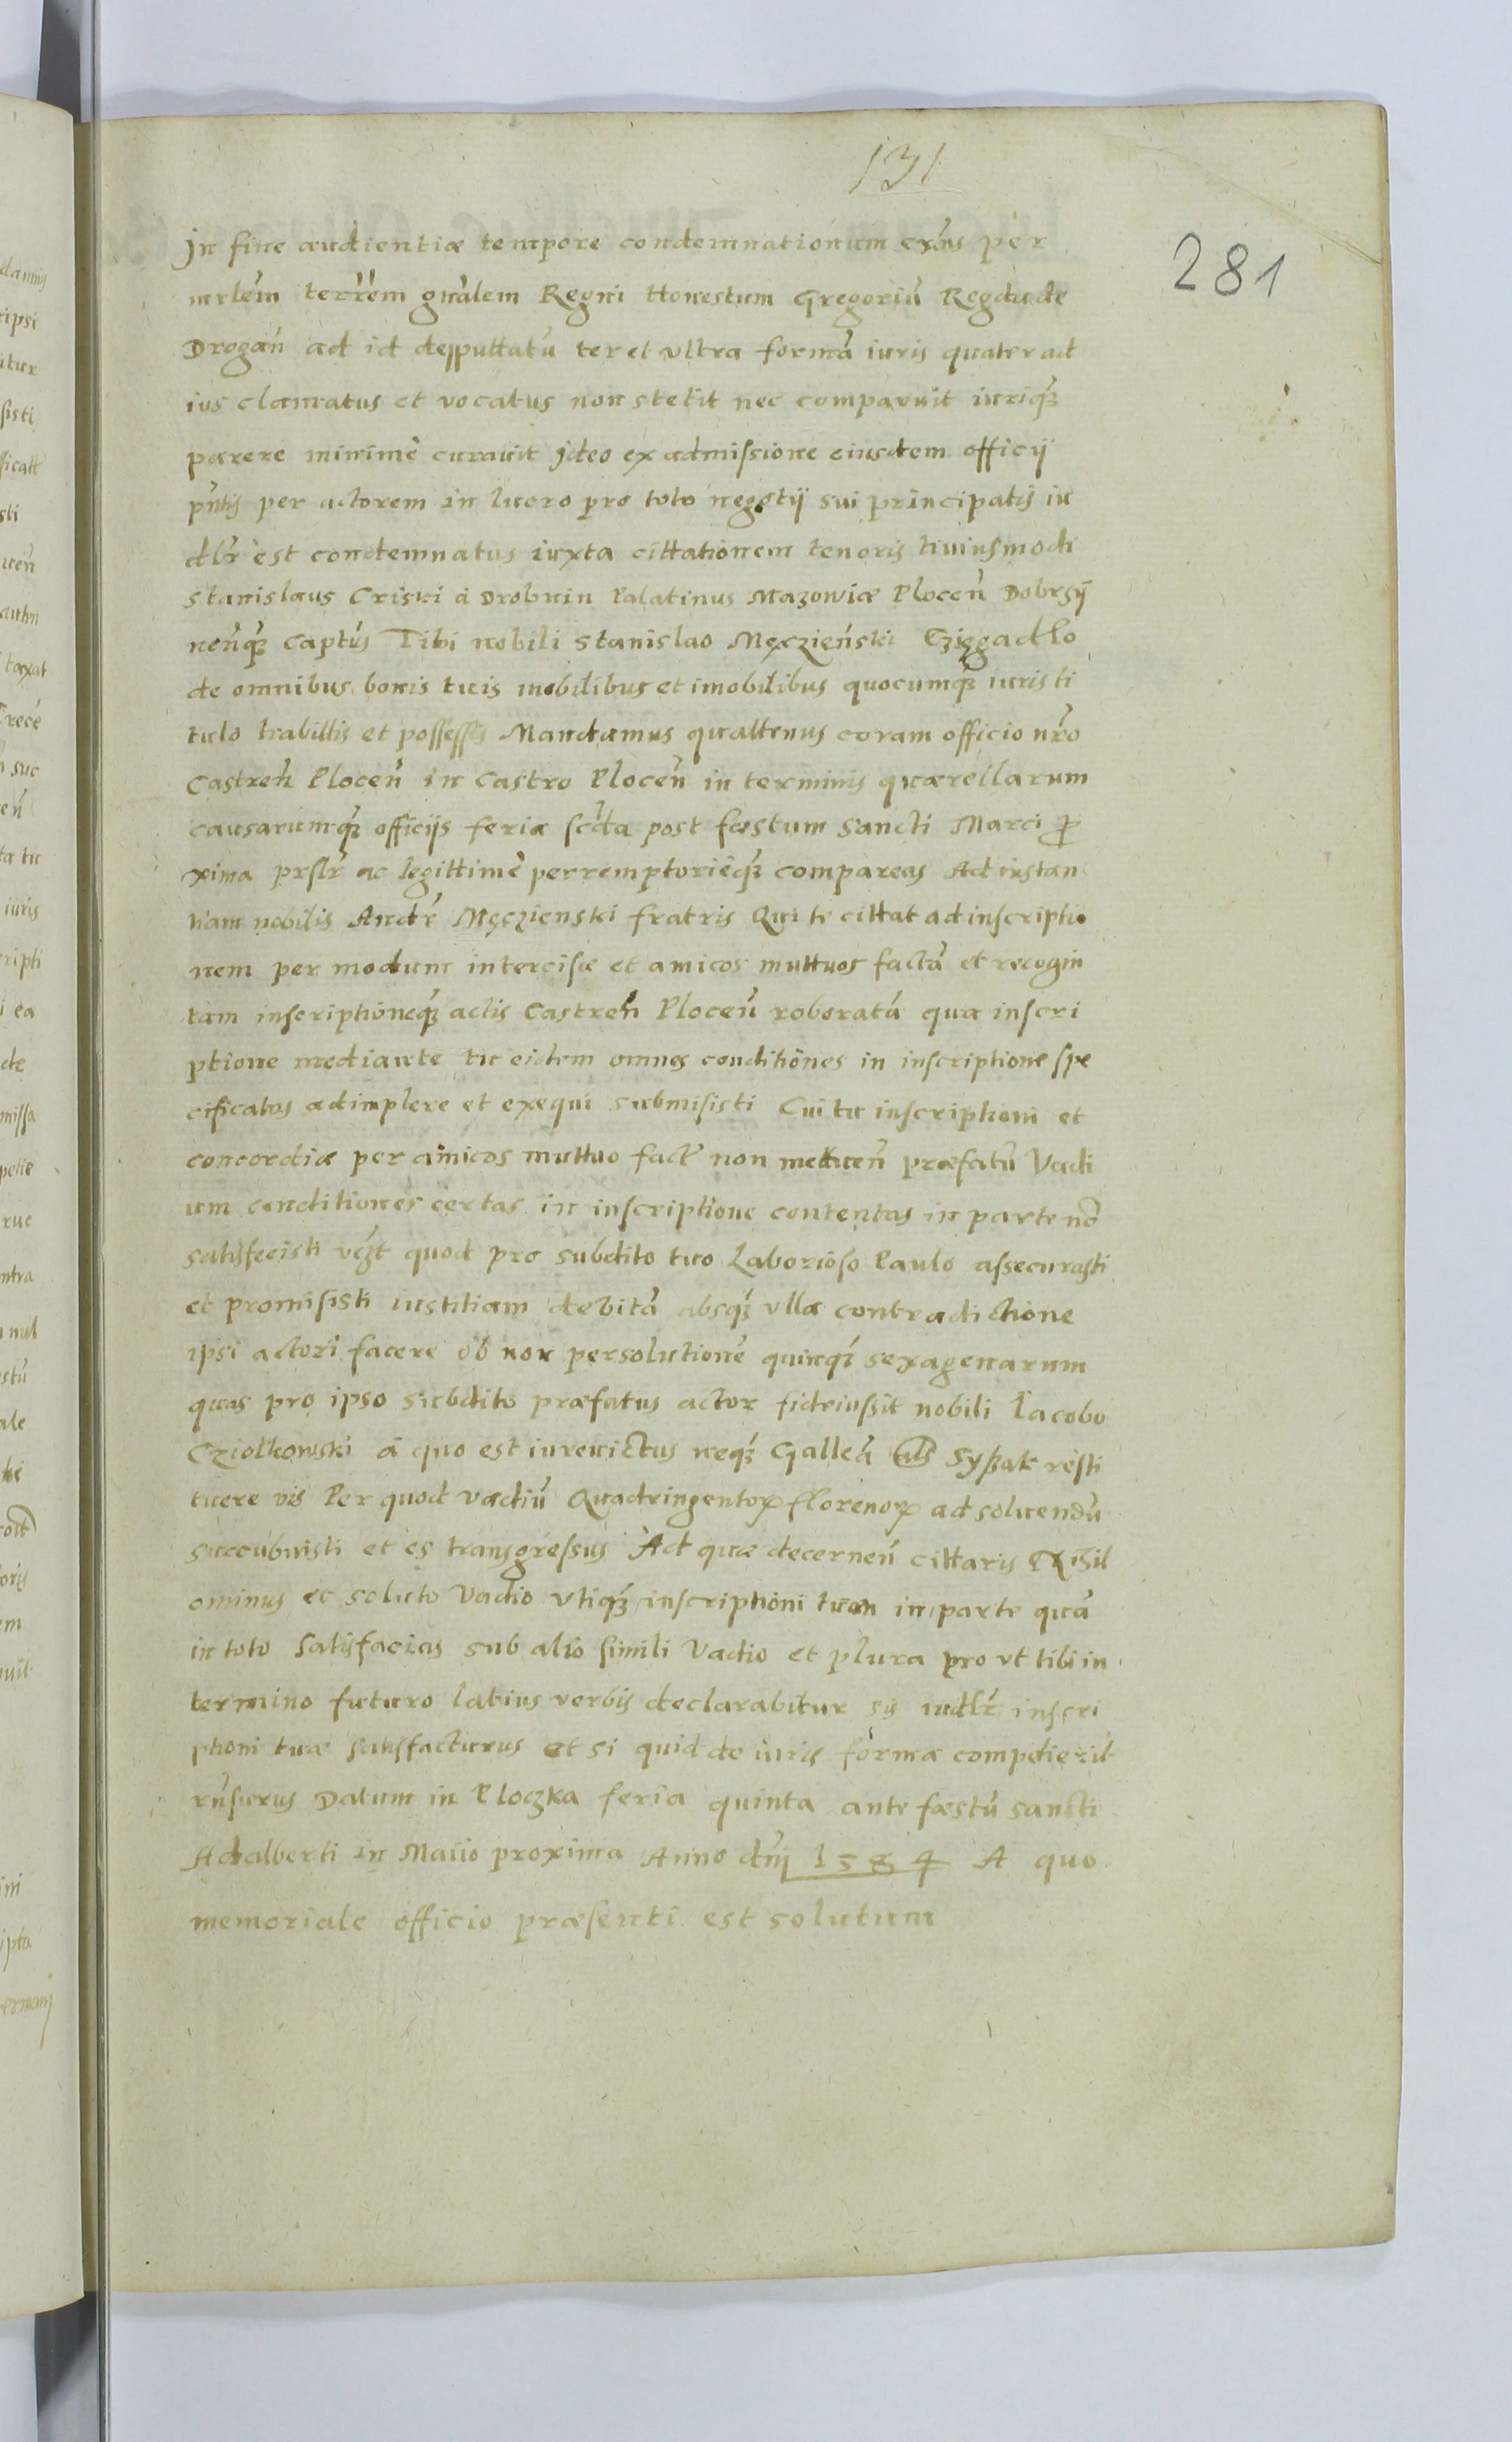 131
281
In fine audientiæ tempore condemnationum exñs per
mrlēm terrēm gnālem Regni Honestum Gregoriū Regdude
Drogań ad id desputtatū ter et vltra formā iuris quater ad
ius clamatus et vocatus non stetit nec comparuit iuriqȝ
parere minimè curauit ideo ex admissione eiusdem officij
pñtis per actorem in lucro pro toto negotij sui principalis iu
dlr est condemnatus iuxta cittationem tenoris huiusmodi
Stanislaus Criski à Drobnin Palatinus Mazowiæ Plocen̄ Dobrzÿ
nen̄qȝ Captūs Tibi nobili Stanislao Męczieński Czięgadło
de omnibus bonis tuis mobilibus et imobilibus quocumqȝ iuris ti
tulo habittis et possessis Mandamus quattenus coram officio nr̄o
Castren̄ Plocen̄ in Castro Plocen̄ in terminis quærellarum
causarumqȝ officijs feria scd̄a post fæstum Sancti Marci ꝓ
xima prslr ac legittimè perremptorièqȝ compareas Ad instan
tiam nobilis Andr̄ Męczienski fratris Qui te cittat ad inscriptio
nem per modum intercisæ et amicos muttuos factā et recogin
tam inscriptioneqȝ actis Castren̄ Plocen̄ roboratā qua inscri
ptione mediante tu eidem omnes conditiones in inscriptione spe
cificatas adimplere et exequi submisisti Cui tu inscriptioni et
concordiæ per amicos muttuo fact̄ non mettuen̄ præfatū Vadi
um conditiones certas in inscriptione contentas in parte nō
satisfecisti vȝt quod pro subdito tuo Laborioso Paulo assecurasti
et promisisti iustitiam debitā absqȝ vlla contradictione
ipsi actori facere ob non persolutionē quinqȝ sexagenarum
quas pro ipso subdito præfatus actor fideiussit nobili Iacobo
Cziołkowski à quo est iureuictus neqȝ Galleā als Syßak resti
tuere vis Per quod vadiū Quadringentoꝝ florenoꝝ ad soluendū
succubuisti et es transgressus Ad quæ decernen̄ cittaris Nihil
ominus et soluto Vadio vtiqȝ inscriptioni tuæ in parte quā
in toto satisfacias sub alio simili Vadio et plura pro vt tibi in
termino futuro latius verbis declarabitur sis iudlr inscri
ptioni tuæ satisfacturus et si quid de iuris forma competierit
rn̄surus Datum in Ploczka feria quinta ante fæstū sancti
Adalberti in Maiio proxima Anno dn̄j 1584 A quo
memoriale officio præsenti est solutum